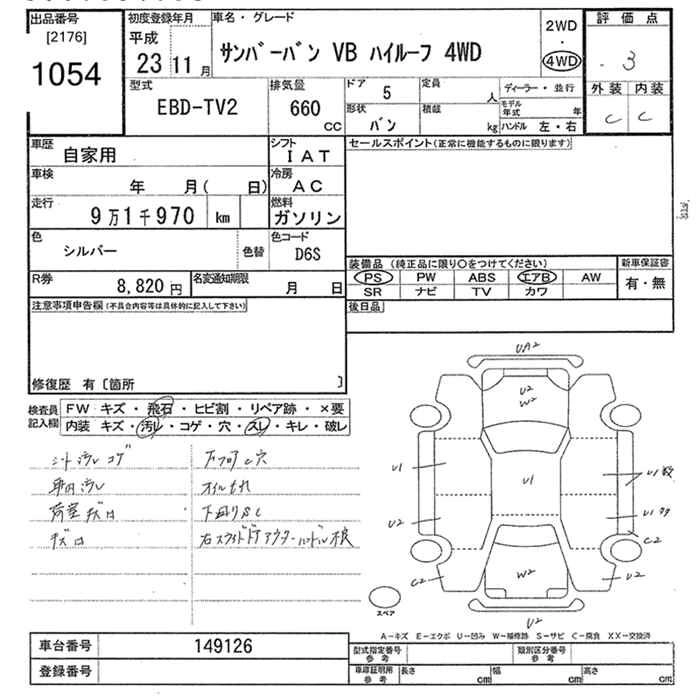 出品番号
[2176]
1054
初度登録年月
平成
23 11 月
車名・グレード
サンバーバン VB ハイルーフ 4WD
2WD
・
4WD
評価点
3
外装 内装
C C
型式
EBD-TV2
排気量
660
CC
ドア 5
定員 人
ディーラー・並行
モデル年式 年
形状 バン
積載 kg
ハンドル 左・右
車歴 自家用
シフト IAT
車検 年 月( 日)
冷房 AC
走行 9万1千970 km
燃料 ガソリン
色 シルバー 色替
色コード D6S
R券 8,820 円
名変通知期限 月 日
セールスポイント(正常に機能するものに限ります)
装備品 (純正品に限り○をつけてください)
新車保証書
PS PW ABS エアB AW
SR ナビ TV カワ
有・無
後日品
注意事項申告欄(不具合内容等は具体的に記入して下さい)
修復歴 有〔箇所 〕
検査員記入欄
FW キズ・飛石・ヒビ割・リペア跡・×要
内装 キズ・汚レ・コゲ・穴・スレ・キレ・破レ
シート汚レ コゲ
車内汚レ
荷室キズ凹
キズ凹
オイルもれ
下廻りSC
右スライドドアアウターハンドル不良
UA2
U2
W2
U1
U1
U2
C2
U1
U1
C2
U2
W2
U2
スペア
A-キズ E-エクボ U-凹み W-補修跡 S-サビ C-腐食 XX-交換済
車台番号 149126
登録番号
型式指定番号 参考
類別区分番号 参考
車庫証明用 参考
長さ cm 幅 cm 高さ cm